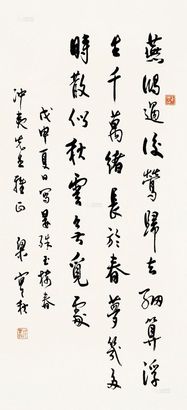 燕鴻過後鶯歸去細算浮
生千萬緒長於春夢幾多
時散似秋雲無覓處
戊申夏日寫晏殊玉樓春
沖夷先生雅正 梁寒操